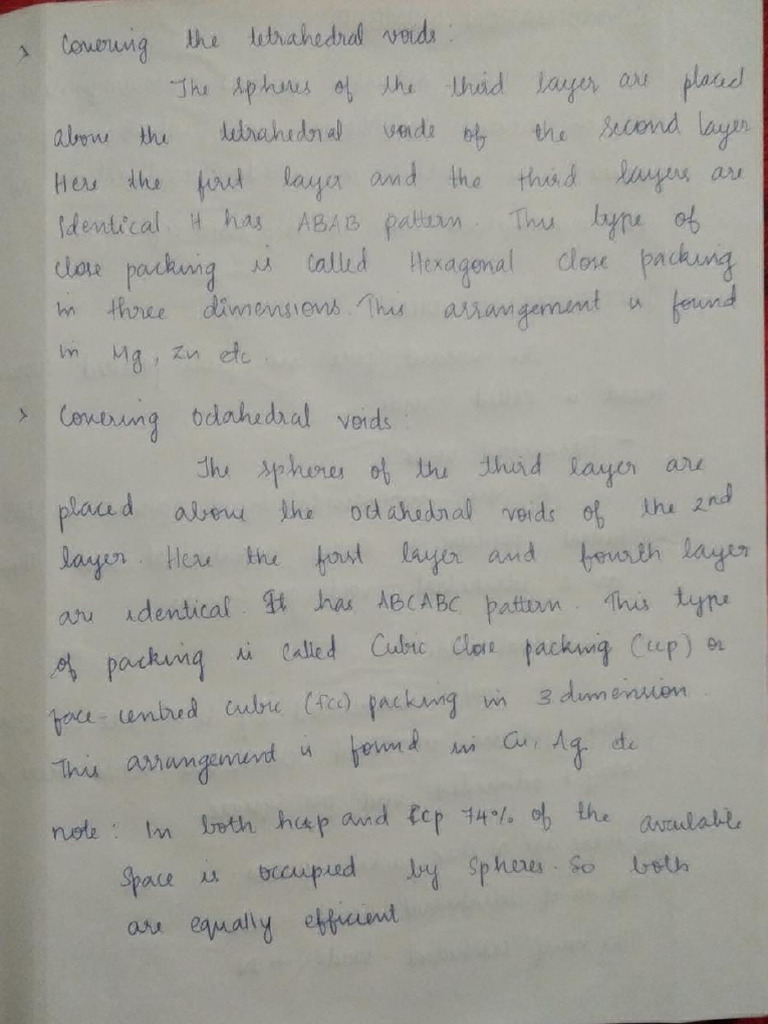 > Covering the tetrahedral voids:
The spheres of the third layer are placed
above the tetrahedral voids of the second layer
Here the first layer and the third layers are
identical. It has ABAB pattern. This type of
close packing is called Hexagonal close packing
in three dimensions. This arrangement is found
in Mg, Zn etc.
> Covering octahedral voids:
The spheres of the third layer are
placed above the octahedral voids of the 2nd
layer. Here the first layer and fourth layer
are identical. It has ABCABC pattern. This type
of packing is called Cubic Close packing (ccp) or
face-centred cubic (fcc) packing in 3 dimension.
This arrangement is found in Cu, Ag etc
note: In both hcp and ccp 74% of the available
space is occupied by spheres. So both
are equally efficient